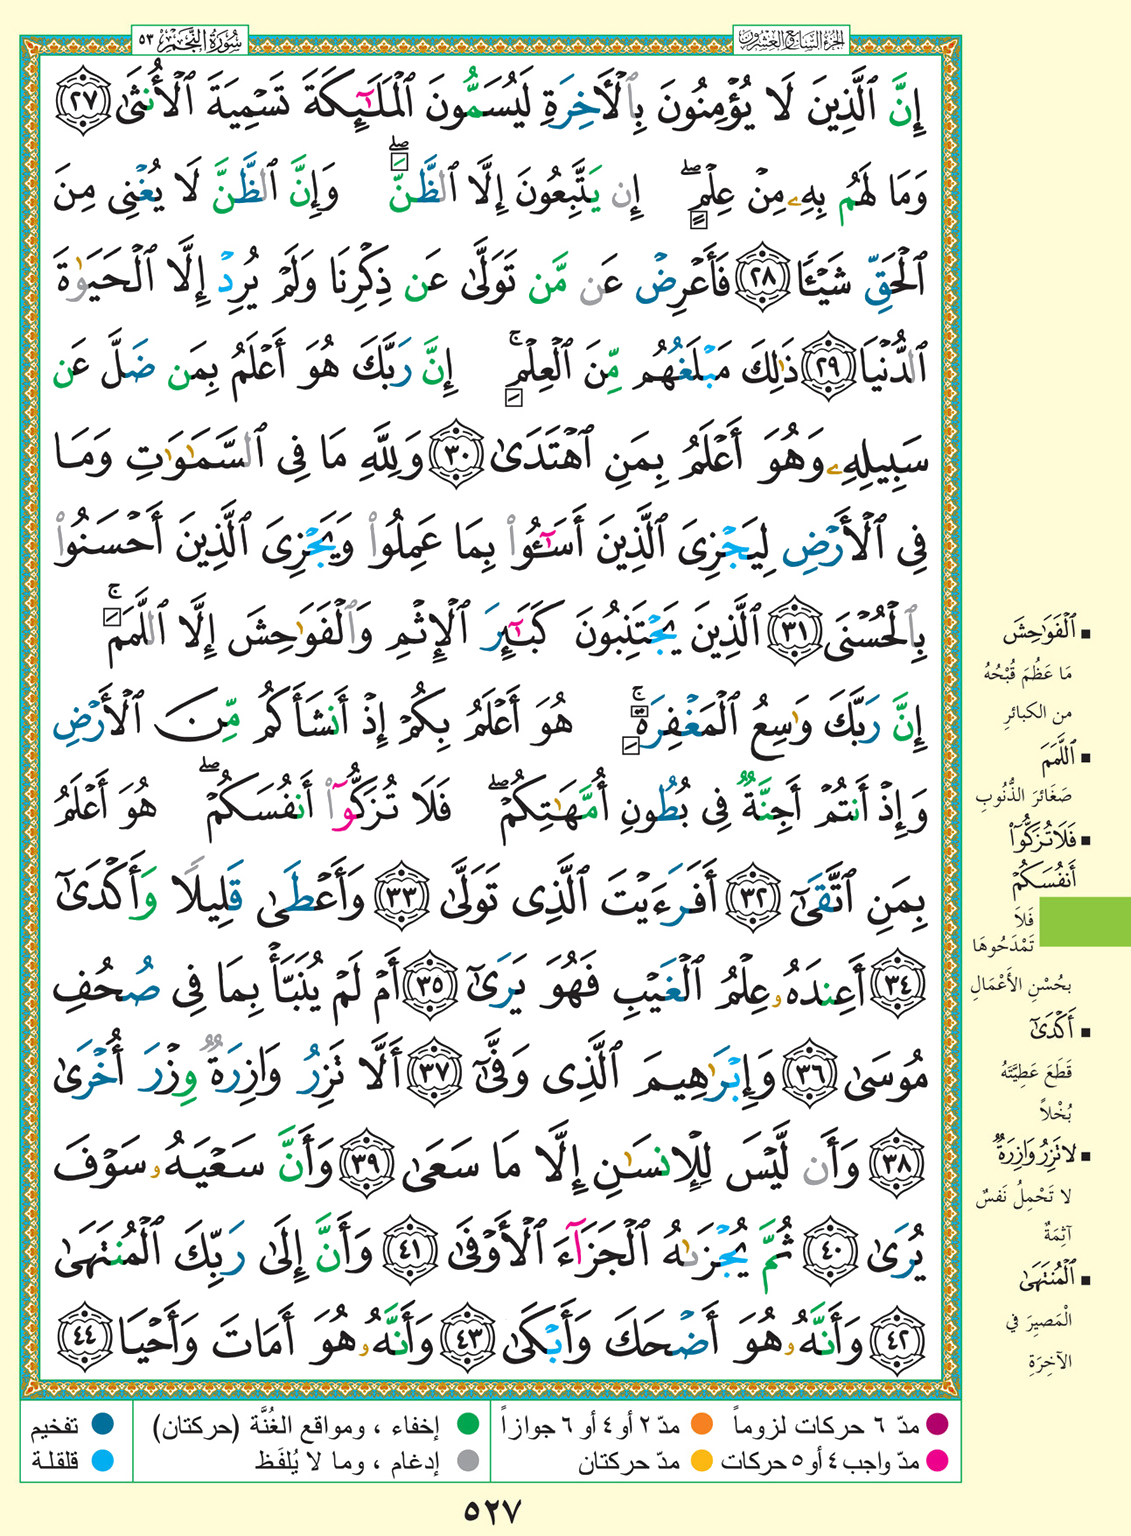 الجزء السابع والعشرون
سورة النجم ٥٣
إِنَّ ٱلَّذِينَ لَا يُؤْمِنُونَ بِٱلْأَخِرَةِ لَيُسَمُّونَ ٱلْمَلَٰٓئِكَةَ تَسْمِيَةَ ٱلْأُنثَىٰ ٢٧
وَمَا لَهُم بِهِۦ مِنْ عِلْمٍ ۖ إِن يَتَّبِعُونَ إِلَّا ٱلظَّنَّ ۖ وَإِنَّ ٱلظَّنَّ لَا يُغْنِى مِنَ
ٱلْحَقِّ شَيْـًٔا ٢٨ فَأَعْرِضْ عَن مَّن تَوَلَّىٰ عَن ذِكْرِنَا وَلَمْ يُرِدْ إِلَّا ٱلْحَيَوٰةَ
ٱلدُّنْيَا ٢٩ ذَٰلِكَ مَبْلَغُهُم مِّنَ ٱلْعِلْمِ ۚ إِنَّ رَبَّكَ هُوَ أَعْلَمُ بِمَن ضَلَّ عَن
سَبِيلِهِۦ وَهُوَ أَعْلَمُ بِمَنِ ٱهْتَدَىٰ ٣٠ وَلِلَّهِ مَا فِى ٱلسَّمَٰوَٰتِ وَمَا
فِى ٱلْأَرْضِ لِيَجْزِىَ ٱلَّذِينَ أَسَٰٓـُٔوا۟ بِمَا عَمِلُوا۟ وَيَجْزِىَ ٱلَّذِينَ أَحْسَنُوا۟
بِٱلْحُسْنَى ٣١ ٱلَّذِينَ يَجْتَنِبُونَ كَبَٰٓئِرَ ٱلْإِثْمِ وَٱلْفَوَٰحِشَ إِلَّا ٱللَّمَمَ ۚ
إِنَّ رَبَّكَ وَٰسِعُ ٱلْمَغْفِرَةِ ۚ هُوَ أَعْلَمُ بِكُمْ إِذْ أَنشَأَكُم مِّنَ ٱلْأَرْضِ
وَإِذْ أَنتُمْ أَجِنَّةٌ فِى بُطُونِ أُمَّهَٰتِكُمْ ۖ فَلَا تُزَكُّوٓا۟ أَنفُسَكُمْ ۖ هُوَ أَعْلَمُ
بِمَنِ ٱتَّقَىٰٓ ٣٢ أَفَرَءَيْتَ ٱلَّذِى تَوَلَّىٰ ٣٣ وَأَعْطَىٰ قَلِيلًا وَأَكْدَىٰٓ
٣٤ أَعِندَهُۥ عِلْمُ ٱلْغَيْبِ فَهُوَ يَرَىٰٓ ٣٥ أَمْ لَمْ يُنَبَّأْ بِمَا فِى صُحُفِ
مُوسَىٰ ٣٦ وَإِبْرَٰهِيمَ ٱلَّذِى وَفَّىٰٓ ٣٧ أَلَّا تَزِرُ وَازِرَةٌ وِزْرَ أُخْرَىٰ
٣٨ وَأَن لَّيْسَ لِلْإِنسَٰنِ إِلَّا مَا سَعَىٰ ٣٩ وَأَنَّ سَعْيَهُۥ سَوْفَ
يُرَىٰ ٤٠ ثُمَّ يُجْزَىٰهُ ٱلْجَزَآءَ ٱلْأَوْفَىٰ ٤١ وَأَنَّ إِلَىٰ رَبِّكَ ٱلْمُنتَهَىٰ
٤٢ وَأَنَّهُۥ هُوَ أَضْحَكَ وَأَبْكَىٰ ٤٣ وَأَنَّهُۥ هُوَ أَمَاتَ وَأَحْيَا ٤٤
ٱلْفَوَٰحِشَ
مَا عَظُمَ قُبْحُهُ
من الكبائرِ
ٱللَّمَمَ
صَغَائرَ الذُّنُوبِ
فَلَا تُزَكُّوٓا۟
أَنفُسَكُمْ
فَلَا
تَمْدَحُوهَا
بحُسْنِ الأَعْمَالِ
أَكْدَىٰٓ
قَطَعَ عَطِيَّتَهُ
بُخْلاً
لا تَزِرُ وَازِرَةٌ
لا تَحْمِلُ نَفسٌ
آثِمَةٌ
ٱلْمُنتَهَىٰ
الْمَصِيرَ في
الآخِرَةِ
مدّ ٦ حركات لزوماً
مدّ ٢ أو ٤ أو ٦ جوازاً
إخفاء ، ومواقع الغُنَّة (حركتان)
تفخيم
مدّ واجب ٤ أو ٥ حركات
مدّ حركتان
إدغام ، وما لا يُلفَظ
قلقلة
٥٢٧